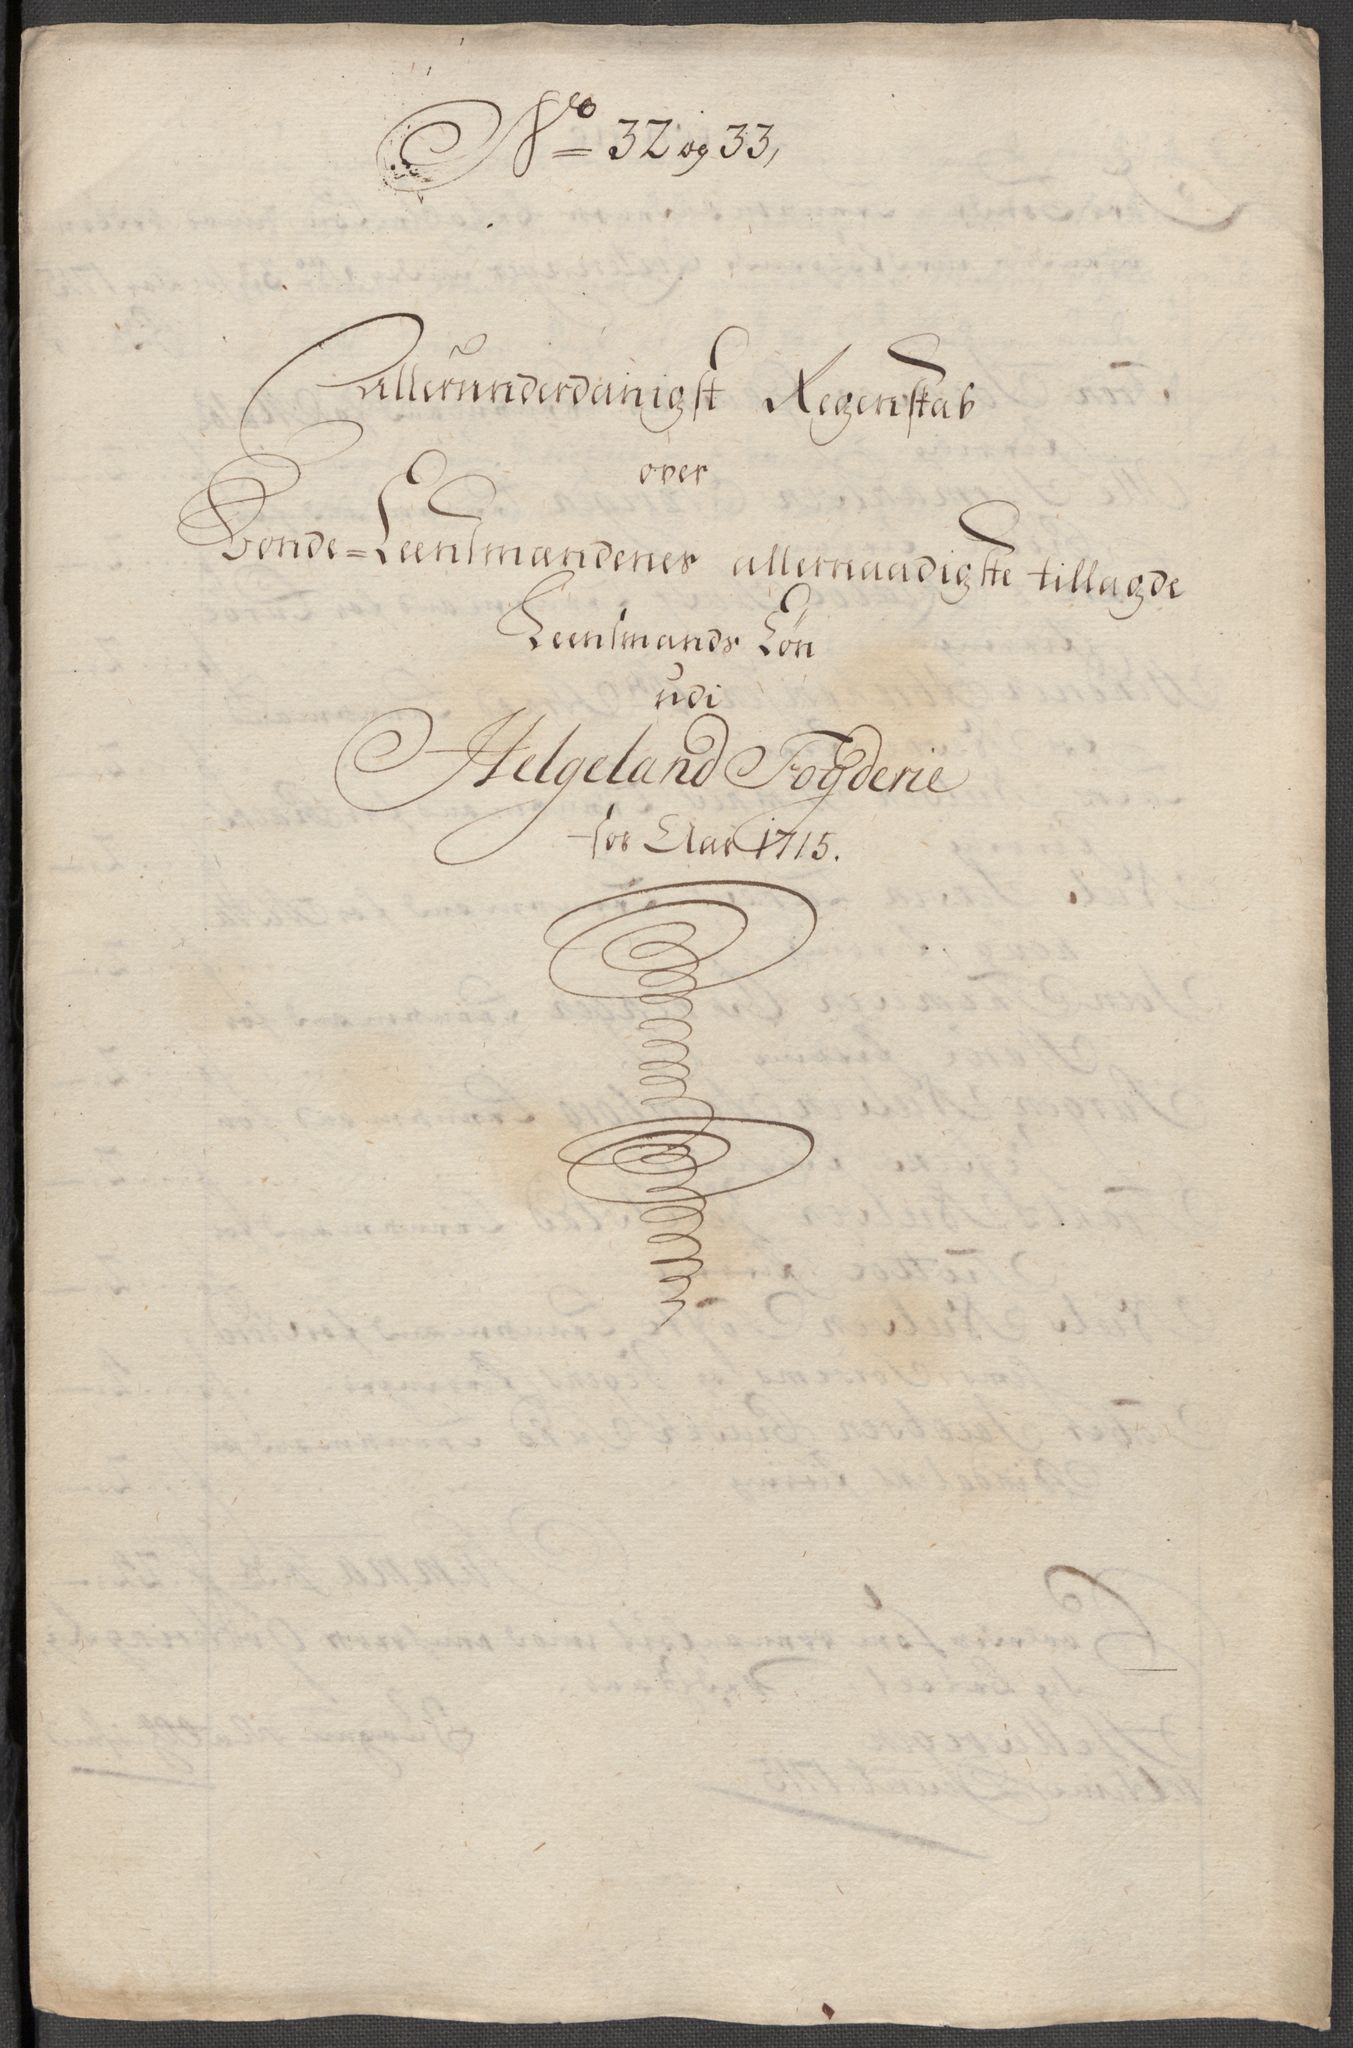 No 32 og 33,
Allerunderdanigst Regenskab
over
Bonde=Leensmændenes allernaadigste tillagde
Leensmands Løn
udi
Helgeland Fogderie
for Aar 1715.